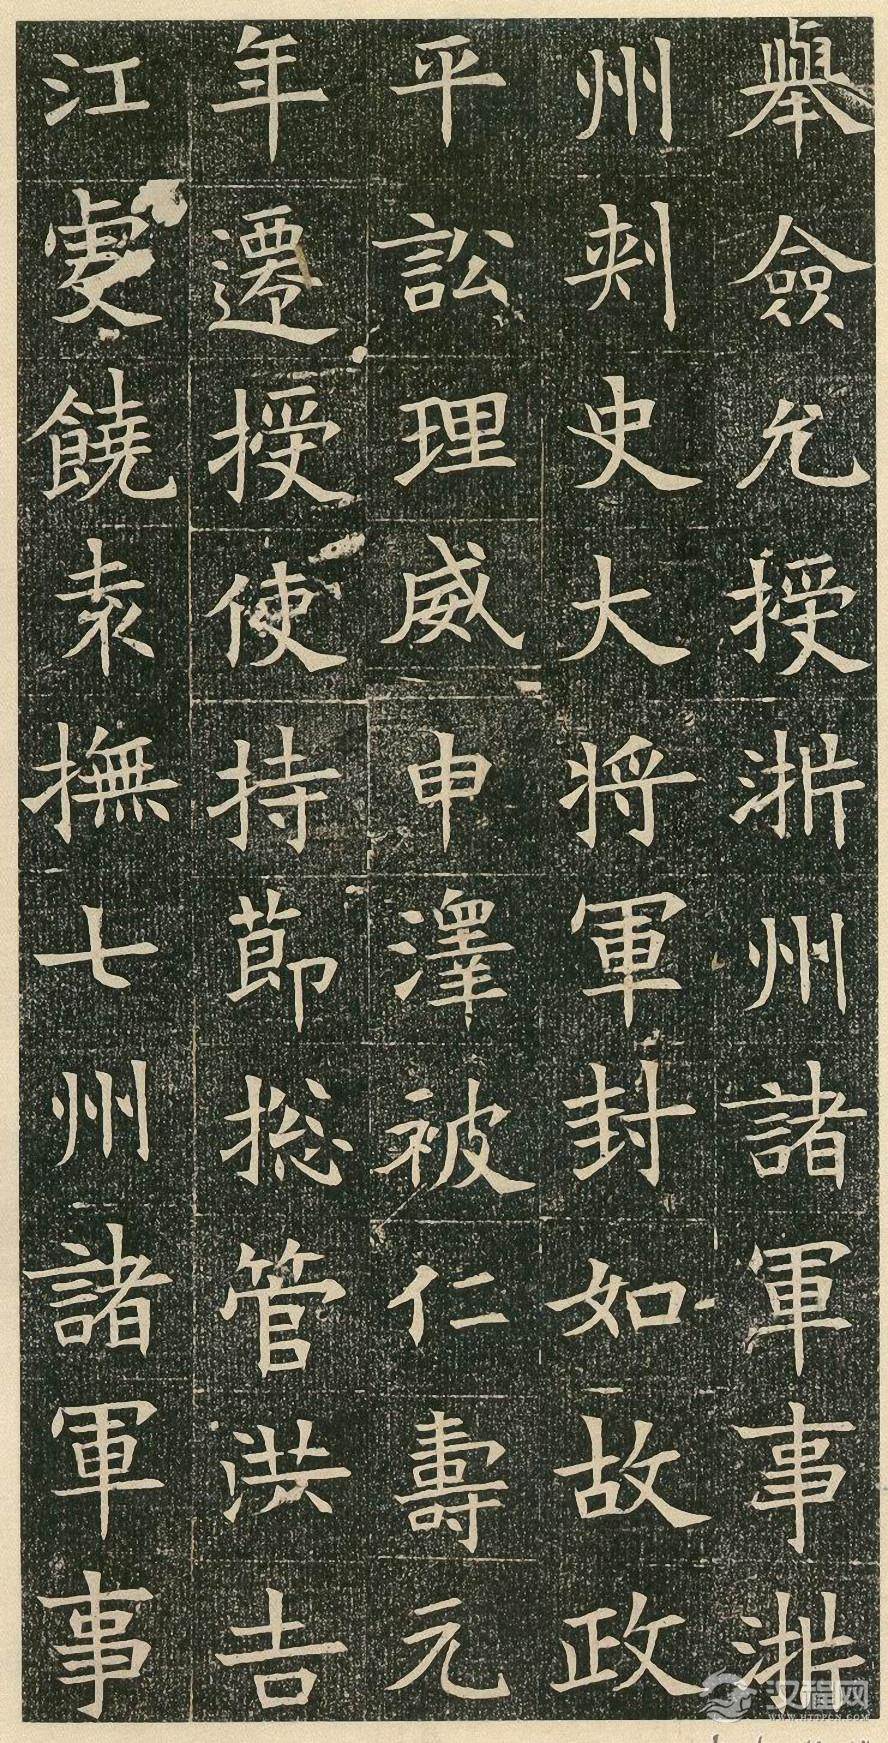 舉僉允授淅州諸軍事淅
州刺史大將軍封如故政
平訟理威申澤被仁壽元
年遷授使持莭揔管洪吉
江虔饒袁撫七州諸軍事
汉程网
WWW.HTTPCN.COM